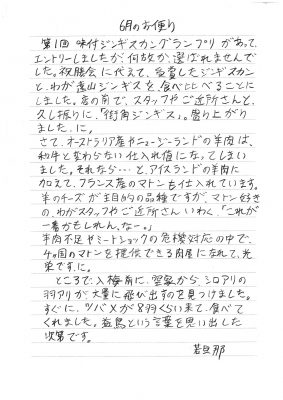 6月のお便り
第1回 味付ジンギスカングランプリがあって、
エントリーしましたが、何故か選ばれませんで
した。祝勝会に代えて、受賞したジンギスカン
と、わが遠山ジンギスを食べ比べることに
しました。店の前で、スタッフやご近所さんと、
久し振りに、「街角ジンギス」。盛り上がり
ましたに。
さて、オーストラリア産やニュージーランドの羊肉は、
和牛と変わらない仕入れ値になってしまい
ました。それなら…と、アイスランドの羊肉に
加えて、フランス産のマトンも仕入れています。
羊のチーズが主目的の品種ですが、マトン好き
の、わがスタッフやご近所さんいわく、「これが
一番かもしれんなー。」
羊肉不足やミートショックの危機対応の中で、
4ヶ国のマトンを提供できる肉屋になれて、光
栄ですに。
ところで、入梅前に、空気から、シロアリの
羽アリが大量に飛び出すのを見つけました。
すぐに、ツバメが8羽くらい来て、食べて
くれました。益鳥という言葉を思い出した
次第です。
若旦那